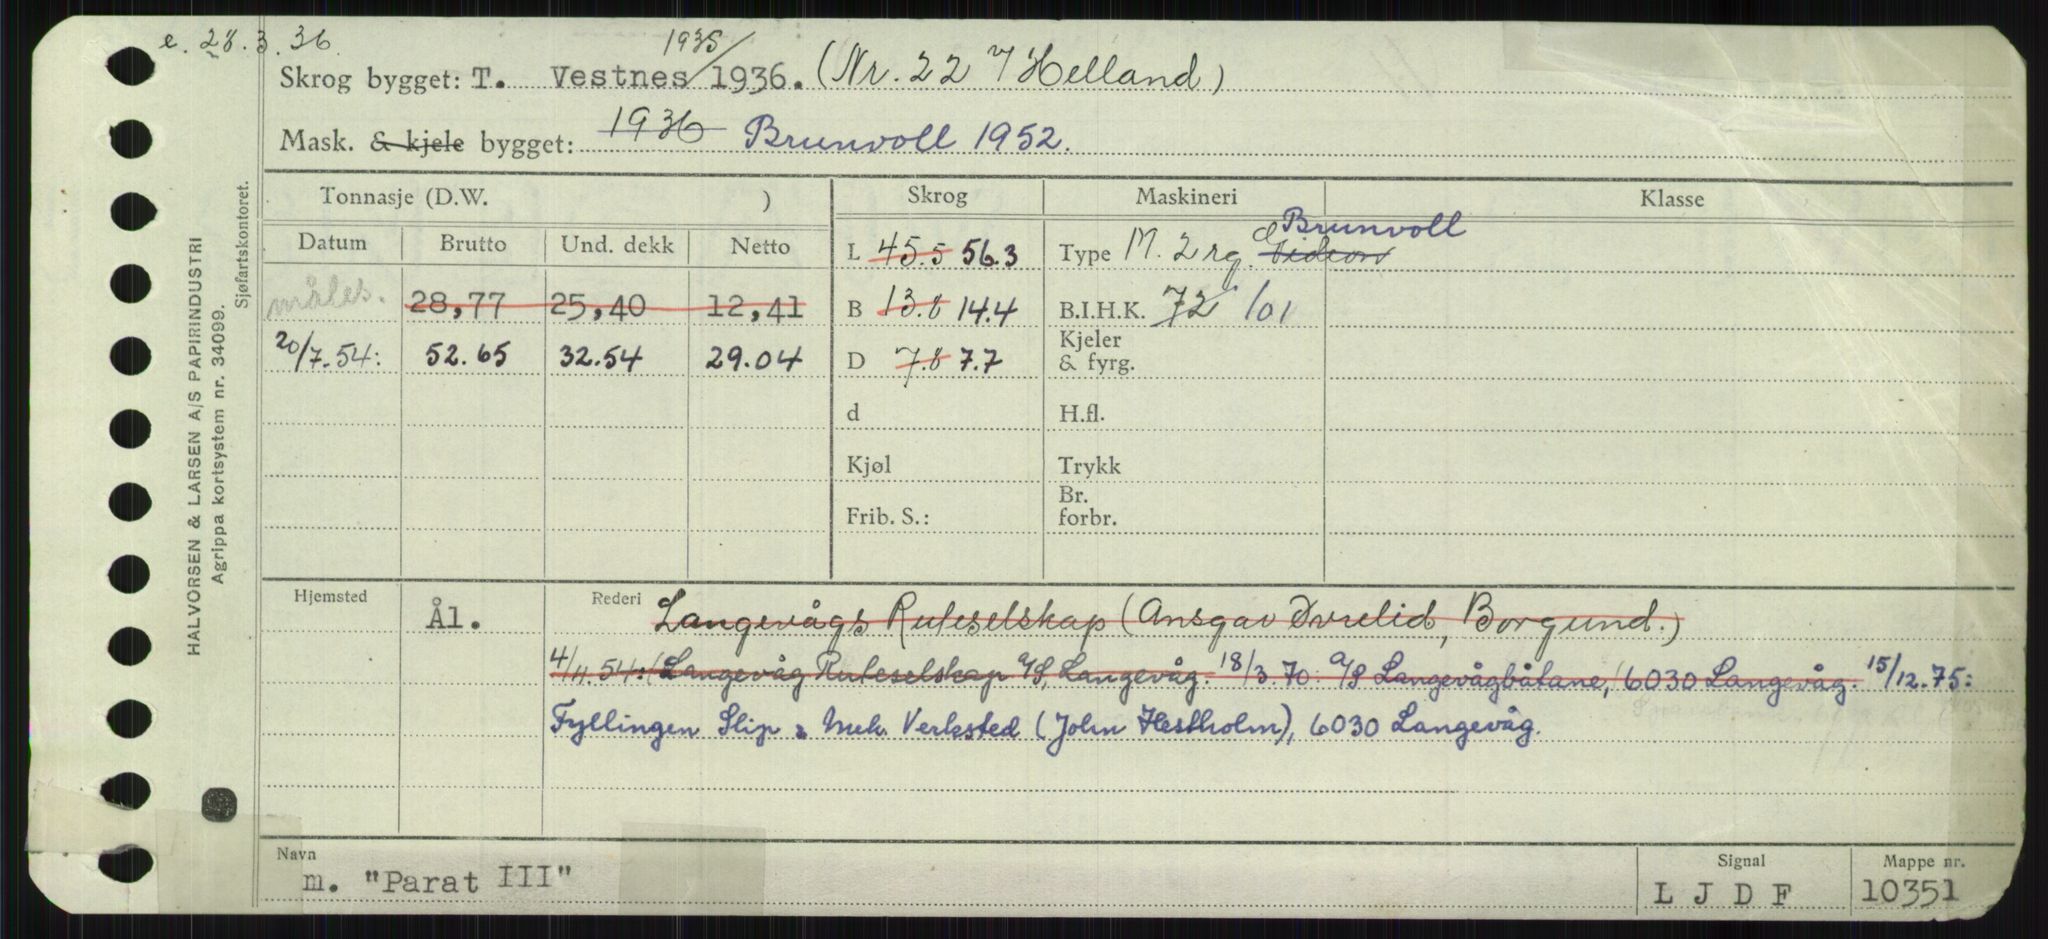 e. 28.3.36.
Skrog bygget: T. Vestnes 1935/1936. (Nr. 22 v/Helland)
Mask. & kjele bygget: 1936 Brunvoll 1952.
Tonnasje (D.W. ) Skrog Maskineri Klasse
Datum Brutto Und. dekk Netto
L 45.5 56.3 Type M. 2 rg. Brunvoll
måles. 28,77 25,40 12,41 B 13.8 14.4 B.I.H.K. 72 101
20/7.54: 52.65 32.54 29.04 D 7.8 7.7 Kjeler & fyrg.
d H.fl.
Kjøl Trykk
Frib. S.: Br. forbr.
Hjemsted Ål. Rederi Langevågs Ruteselskap (Ansgar Overlid, Borgund.)
4/11.54: (Langevåg Ruteselskap A/S, Langevåg. 18/3.70: A/S Langevågbåtane, 6030 Langevåg. 15/12.75:
Fyllingen Slip & Mek. Verksted (John Hestholm), 6030 Langevåg.
Navn Signal Mappe nr.
m. "Parat III" L J D F 10351
HALVORSEN & LARSEN A/S PAPIRINDUSTRI
Agrippa kortsystem nr. 34099.
Sjøfartskontoret.